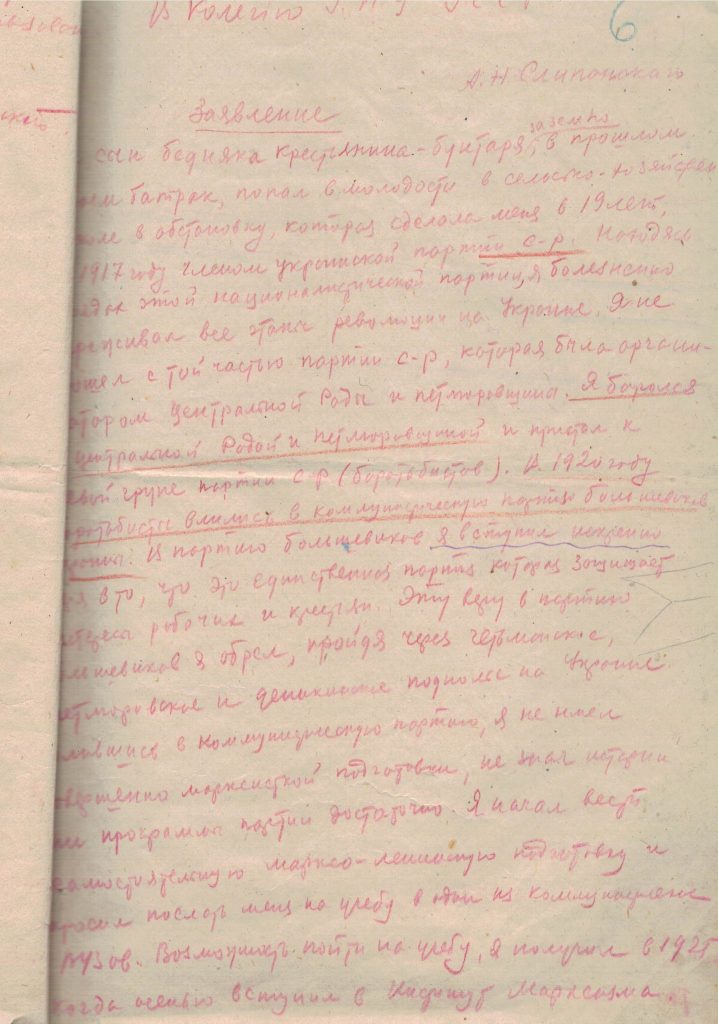 В Колегію Г.П.У. У.С.С.Р
6
А.Н. Слипанского
Заявление
за землю
сын бедняка крестьянина-бунтаря, в прошлом
батрак, попал в молодости в сельско-хозяйствен
в обстановку, которая сделала меня в 19 лет,
1917 году членом украинской партии с-р. Находясь
рядах этой националистической партии, я болезненно
реживал все этапы революции на Украине. Я не
ошел с той частью партии с-р, которая была органи-
атором Центральной Рады и петлюровщины. Я боролся
центральной Радой и петлюровщиной и пристал к
евой групе партии с-р (боротьбистов). В 1920 году
оротьбисты влились в коммунистическую партию большевиков
Украины. В партию большевиков я вступил искренно
ря в то, что это единственная партия которая защищает
нтересы рабочих и крестьян. Эту веру в партию
льшевиков я обрел, пройдя через германское,
етлюровское и деникинское подполье на Украине.
лившись в Коммунистическую партию, я не имел
овершенно марксисткой подготовки, не зная истории
ни программы партии достаточно. Я начал вести
самостоятельную марксо-ленинскую подготовку и
просил послать меня на учебу в один из коммунистических
ВУЗов. Возможность пойти на учебу, я получил в 1925
когда осенью вступил в Институт Марксизма.